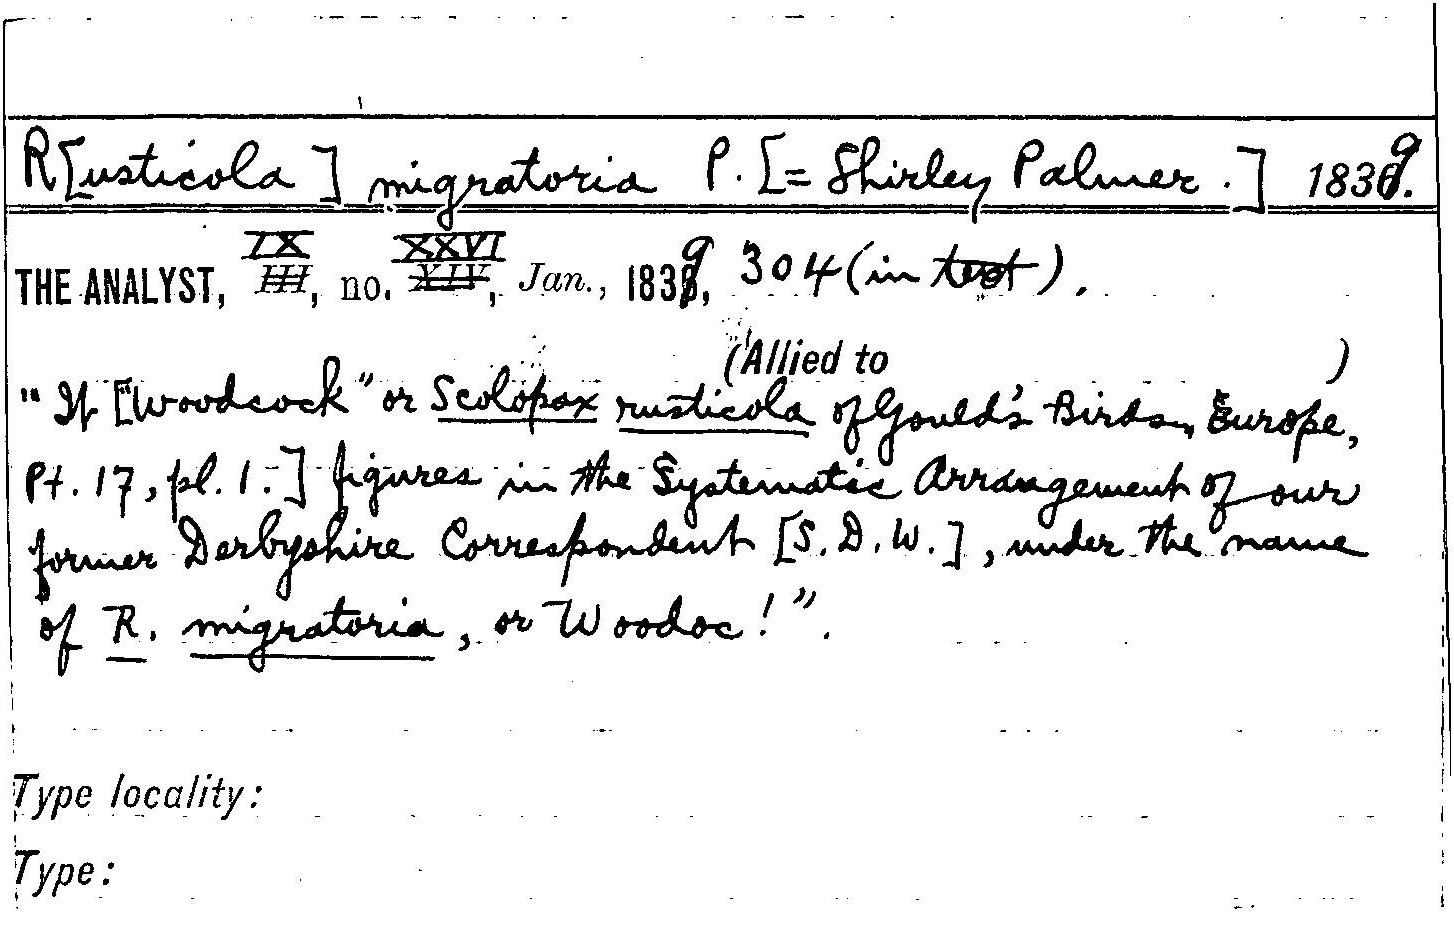 R[usticola] migratoria P. [= Shirley Palmer.] 1839.
IX XXVI
THE ANALYST, III, no. XIV, Jan., 1839, 304 (in text).
(Allied to )
"It ["Woodcock" or Scolopax rusticola of Gould's Birds, Europe,
Pt. 17, pl. 1.] figures in the Systematic Arrangement of our
former Derbyshire Correspondent [S. D. W.], under the name
of R. migratoria, or Woodoc!".
Type locality:
Type: